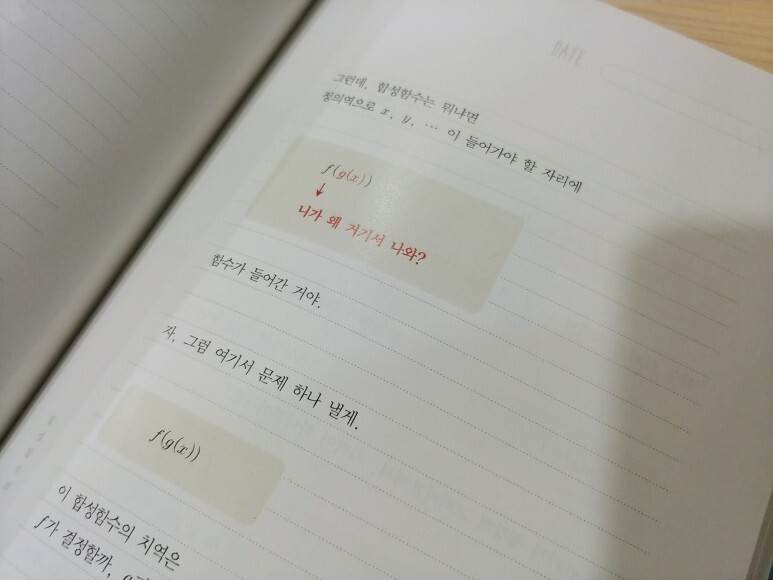 DATE
그런데, 합성함수는 뭐냐면
정의역으로 x, y, … 이 들어가야 할 자리에
f(g(x))
↓
니가 왜 거기서 나와?
함수가 들어간 거야.
자, 그럼 여기서 문제 하나 낼게.
f(g(x))
이 합성함수의 치역은
f가 결정할까,